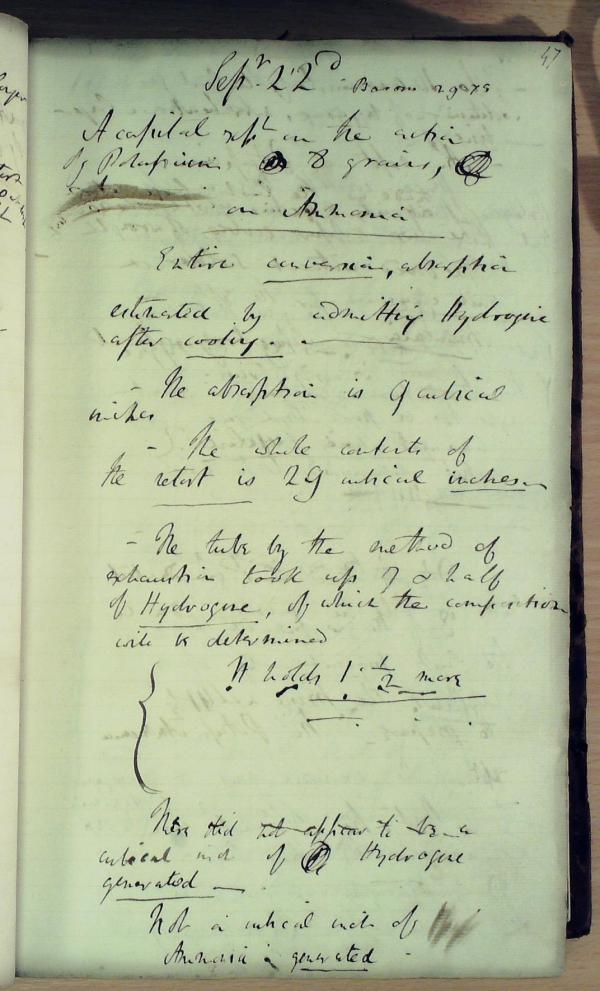 47
Sepr. 22d Barom 29.78
A capital expt on the action
of Potassium 8 grains,
on Ammonia
Entire conversion, absorption
estimated by admitting Hydrogene
after cooling.
- The absorption is 9 cubical
inches
- The whole contents of
the retort is 29 cubical inches
- The tube by the method of
exhaustion took up 7 & half
of Hydrogene, of which the composition
will be determined
It holds 1 1/2 more
There did not appear to be a
cubical inch of Hydrogene
generated
Not a cubical inch of
Ammonia is generated